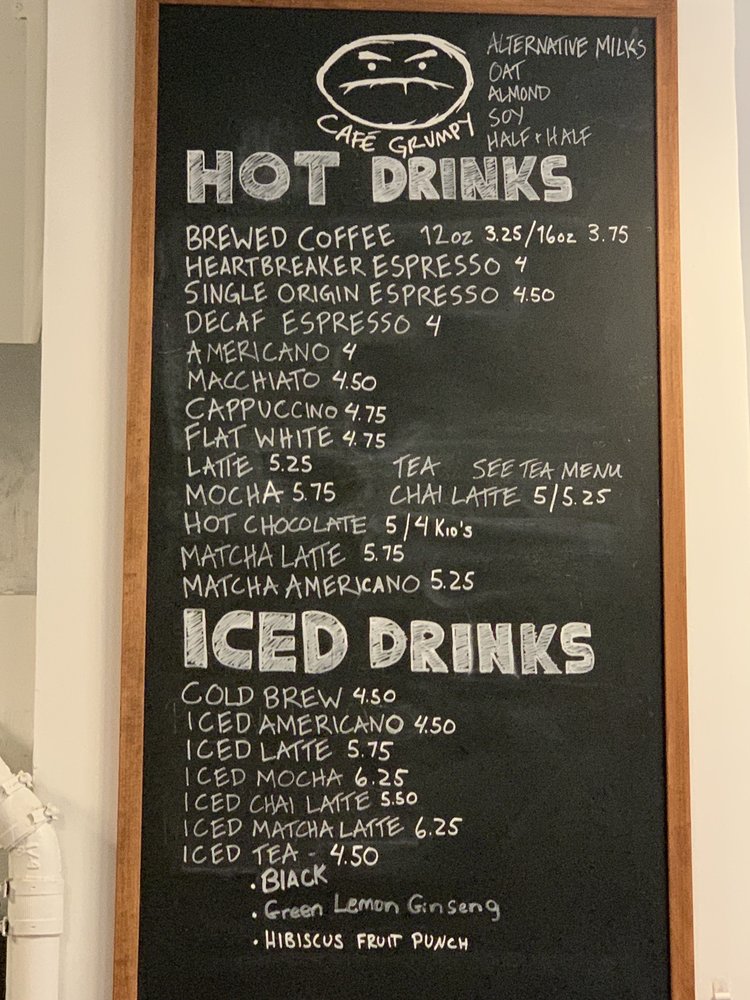 CAFÉ GRUMPY
ALTERNATIVE MILKS
OAT
ALMOND
SOY
HALF + HALF
HOT DRINKS
BREWED COFFEE 12oz 3.25/16oz 3.75
HEARTBREAKER ESPRESSO 4
SINGLE ORIGIN ESPRESSO 4.50
DECAF ESPRESSO 4
AMERICANO 4
MACCHIATO 4.50
CAPPUCCINO 4.75
FLAT WHITE 4.75
LATTE 5.25 TEA SEE TEA MENU
MOCHA 5.75 CHAI LATTE 5/5.25
HOT CHOCOLATE 5/4 KID'S
MATCHA LATTE 5.75
MATCHA AMERICANO 5.25
ICED DRINKS
COLD BREW 4.50
ICED AMERICANO 4.50
ICED LATTE 5.75
ICED MOCHA 6.25
ICED CHAI LATTE 5.50
ICED MATCHA LATTE 6.25
ICED TEA - 4.50
• BLACK
• Green Lemon Ginseng
• HIBISCUS FRUIT PUNCH